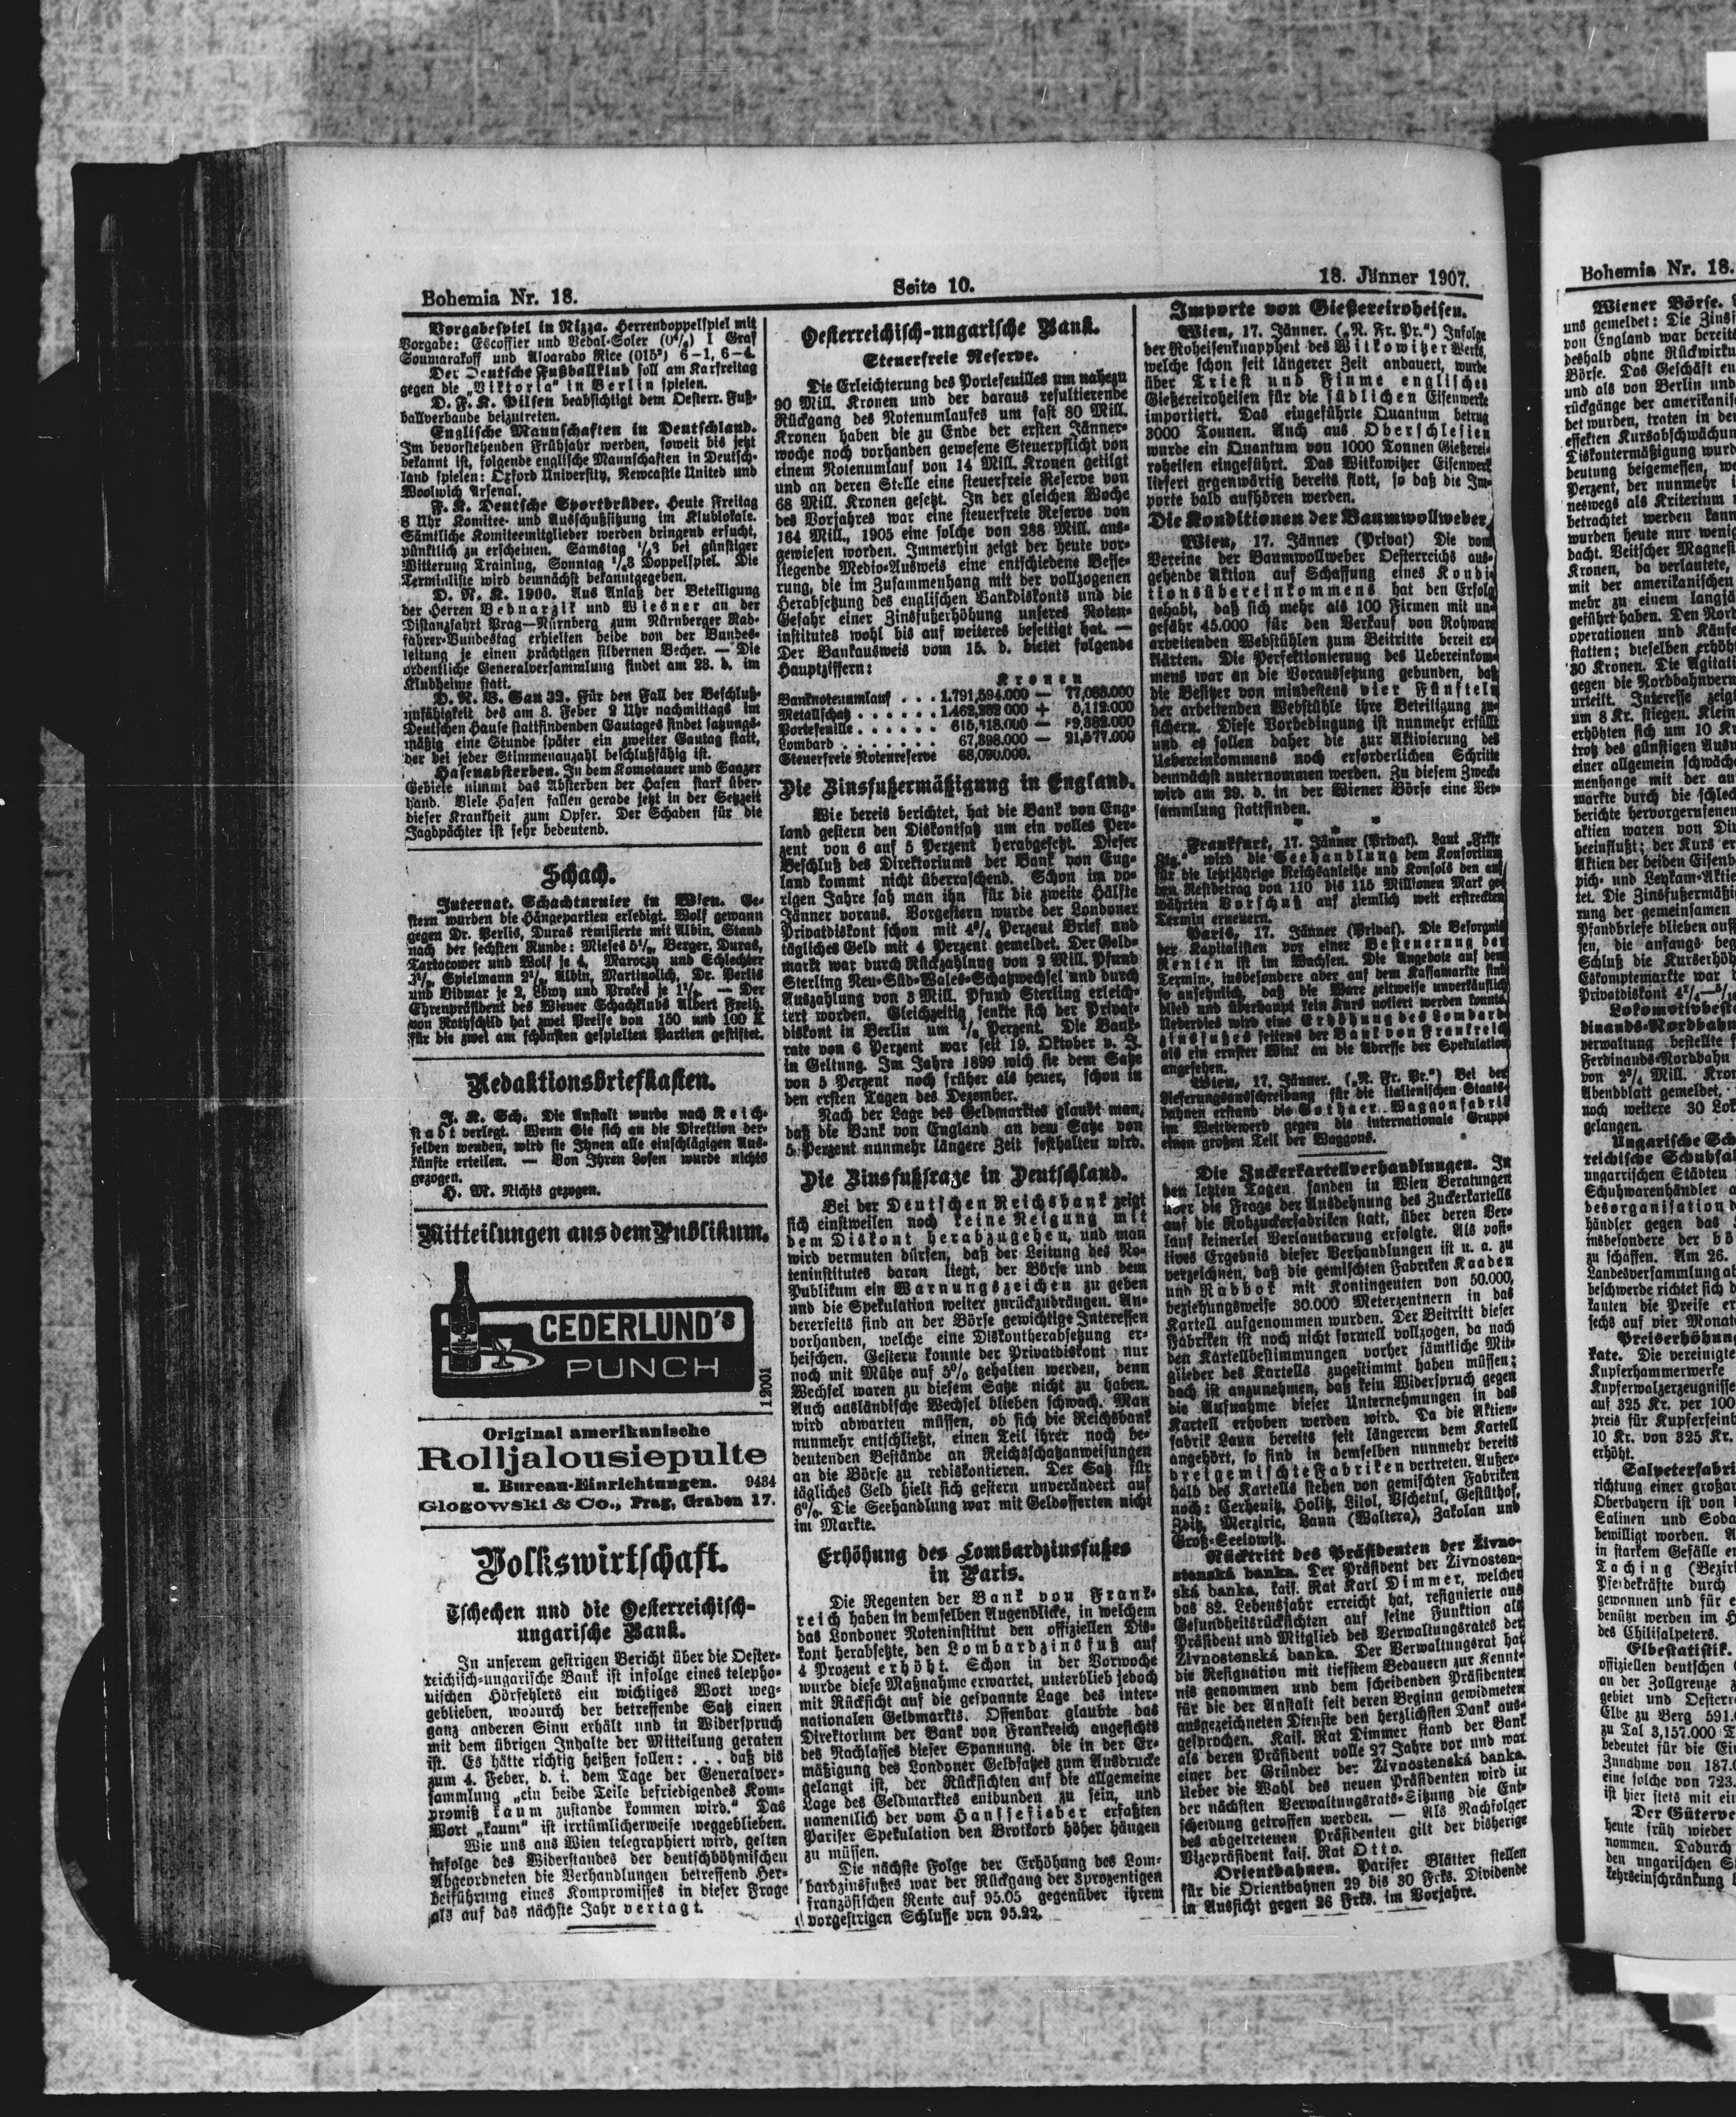 Bohemia Nr. 18.
Seite 10.
18. Jänner 1907.
Vorgabespiel in Nizza. Herrendoppelspiel mit
Vorgabe: Escoffier und Vedal-Soler I Graf
Soumarakoff und Alvarado Rice 6—1, 6—4.
Der Deutsche Fußballklub soll am Karfreitag
gegen die „Viktoria" in Berlin spielen.
D. F. K. Pilsen beabsichtigt dem Oesterr. Fuß-
ballverbande beizutreten.
Englische Mannschaften in Deutschland.
Im bevorstehenden Frühjahr werden, soweit bis jetzt
bekannt ist, folgende englische Mannschaften in Deutsch-
land spielen: Oxford University, Newcastle United und
Woolwich Arsenal.
F. K. Deutsche Sportbrüder. Heute Freitag
8 Uhr Komitee- und Ausschußsitzung im Klublokale.
Sämtliche Komiteemitglieder werden dringend ersucht,
pünktlich zu erscheinen. Samstag ½3 bei günstiger
Witterung Training, Sonntag ½3 Doppelspiel. Die
Terminliste wird demnächst bekanntgegeben.
D. R. K. 1900. Aus Anlaß der Beteiligung
der Herren Bednarzik und Wiesner an der
Distanzfahrt Prag—Nürnberg zum Nürnberger Rad-
fahrer-Bundestag erhielten beide von der Bundes-
leitung je einen prächtigen silbernen Becher. — Die
ordentliche Generalversammlung findet am 28. d. im
Klubheime statt.
D. R. B. Gau 33. Für den Fall der Beschluß-
unfähigkeit des am 3. Feber 2 Uhr nachmittags im
Deutschen Hause stattfindenden Gautages findet satzungs-
mäßig eine Stunde später ein zweiter Gautag statt,
der bei jeder Stimmenanzahl beschlußfähig ist.
Hasenabsterben. In dem Komotauer und Saazer
Gebiete nimmt das Absterben der Hasen stark über-
hand. Viele Hasen fallen gerade jetzt in der Setzzeit
dieser Krankheit zum Opfer. Der Schaden für die
Jagdpächter ist sehr bedeutend.
Schach.
Internat. Schachturnier in Wien. Ge-
stern wurden die Hängepartien erledigt. Wolf gewann
gegen Dr. Perlis, Duras remisierte mit Albin. Stand
nach der sechsten Runde: Mieses 5½, Berger, Duras,
Tartacower und Wolf je 4, Maroczy und Schlechter
3½, Spielmann 2½, Albin, Martinolich, Dr. Perlis
und Vidmar je 2, Löwy und Prokes je 1½. — Der
Ehrenpräsident des Wiener Schachklubs Albert Freih.
von Rothschild hat zwei Preise von 150 und 100 K
für die zwei am schönsten gespielten Partien gestiftet.
Redaktionsbriefkasten.
J. K. Sch. Die Anstalt wurde nach Reich-
stadt verlegt. Wenn Sie sich an die Direktion der-
selben wenden, wird sie Ihnen alle einschlägigen Aus-
künfte erteilen. — Von Ihren Losen wurde nichts
gezogen.
H. M. Nichts gezogen.
Mitteilungen aus dem Publikum.
CEDERLUND'S
PUNCH
12001
Original amerikanische
Rolljalousiepulte
u. Bureau-Einrichtungen. 9434
Glogowski & Co., Prag, Graben 17.
Volkswirtschaft.
Tschechen und die Oesterreichisch-
ungarische Bank.
In unserem gestrigen Bericht über die Oester-
reichisch-ungarische Bank ist infolge eines telepho-
nischen Hörfehlers ein wichtiges Wort weg-
geblieben, wodurch der betreffende Satz einen
ganz anderen Sinn erhält und in Widerspruch
mit dem übrigen Inhalte der Mitteilung geraten
ist. Es hätte richtig heißen sollen: . . . daß bis
zum 4. Feber, d. i. dem Tage der Generalver-
sammlung „ein beide Teile befriedigendes Kom-
promiß kaum zustande kommen wird." Das
Wort „kaum" ist irrtümlicherweise weggeblieben.
Wie uns aus Wien telegraphiert wird, gelten
infolge des Widerstandes der deutschböhmischen
Abgeordneten die Verhandlungen betreffend Her-
beiführung eines Kompromisses in dieser Frage
als auf das nächste Jahr vertagt.
Oesterreichisch-ungarische Bank.
Steuerfreie Reserve.
Die Erleichterung des Portefeuilles um nahezu
90 Mill. Kronen und der daraus resultierende
Rückgang des Notenumlaufes um fast 80 Mill.
Kronen haben die zu Ende der ersten Jänner-
woche noch vorhanden gewesene Steuerpflicht von
einem Notenumlauf von 14 Mill. Kronen getilgt
und an deren Stelle eine steuerfreie Reserve von
68 Mill. Kronen gesetzt. In der gleichen Woche
des Vorjahres war eine steuerfreie Reserve von
164 Mill., 1905 eine solche von 288 Mill. aus-
gewiesen worden. Immerhin zeigt der heute vor-
liegende Medio-Ausweis eine entschiedene Besse-
rung, die im Zusammenhang mit der vollzogenen
Herabsetzung des englischen Bankdiskonts und die
Gefahr einer Zinsfußerhöhung unseres Noten-
institutes wohl bis auf weiteres beseitigt hat. —
Der Bankausweis vom 15. d. bietet folgende
Hauptziffern:
Kronen
Banknotenumlauf . . . 1.791,594.000 — 77,088.000
Metallschatz . . . . . . 1.462,282 000 + 5,112.000
Portefeuille . . . . . . 615,318.000 — 89,382.000
Lombard . . . . . . . . 67,398.000 — 21,577.000
Steuerfreie Notenreserve 68,090.000.
Die Zinsfußermäßigung in England.
Wie bereis berichtet, hat die Bank von Eng-
land gestern den Diskontsatz um ein volles Per-
zent von 6 auf 5 Perzent herabgesetzt. Dieser
Beschluß des Direktoriums der Bank von Eng-
land kommt nicht überraschend. Schon im vo-
rigen Jahre sah man ihn für die zweite Hälfte
Jänner voraus. Vorgestern wurde der Londoner
Privatdiskont schon mit Perzent Brief und
tägliches Geld mit 4 Perzent gemeldet. Der Geld-
markt war durch Rückzahlung von 2 Mill. Pfund
Sterling Neu-Süd-Wales-Schatzwechsel und durch
Auszahlung von 3 Mill. Pfund Sterling erleich-
tert worden. Gleichzeitig senkte sich der Privat-
diskont in Berlin um Perzent. Die Bank-
rate von 6 Perzent war seit 19. Oktober v. J.
in Geltung. Im Jahre 1899 wich sie dem Satze
von 5 Perzent noch früher als heuer, schon in
den ersten Tagen des Dezember.
Nach der Lage des Geldmarktes glaubt man,
daß die Bank von England an dem Satze von
5 Perzent nunmehr längere Zeit festhalten wird.
Die Zinsfußfrage in Deutschland.
Bei der Deutschen Reichsbank zeigt
sich einstweilen noch keine Neigung mit
dem Diskont herabzugehen, und man
wird vermuten dürfen, daß der Leitung des No-
teninstitutes daran liegt, der Börse und dem
Publikum ein Warnungszeichen zu geben
und die Spekulation weiter zurückzudrängen. An-
dererseits sind an der Börse gewichtige Interessen
vorhanden, welche eine Diskontherabsetzung er-
heischen. Gestern konnte der Privatdiskont nur
noch mit Mühe auf 5% gehalten werden, denn
Wechsel waren zu diesem Satze nicht zu haben.
Auch ausländische Wechsel blieben schwach. Man
wird abwarten müssen, ob sich die Reichsbank
nunmehr entschließt, einen Teil ihrer noch be-
deutenden Bestände an Reichsschatzanweisungen
an die Börse zu rediskontieren. Der Satz für
tägliches Geld hielt sich gestern unverändert auf
6%. Die Seehandlung war mit Geldofferten nicht
im Markte.
Erhöhung des Lombardzinsfußes
in Paris.
Die Regenten der Bank von Frank-
reich haben in demselben Augenblicke, in welchem
das Londoner Noteninstitut den offiziellen Dis-
kont herabsetzte, den Lombardzinsfuß auf
4 Prozent erhöht. Schon in der Vorwoche
wurde diese Maßnahme erwartet, unterblieb jedoch
mit Rücksicht auf die gespannte Lage des inter-
nationalen Geldmarkts. Offenbar glaubte das
Direktorium der Bank von Frankreich angesichts
des Nachlasses dieser Spannung, die in der Er-
mäßigung des Londoner Geldsatzes zum Ausdrucke
gelangt ist, der Rücksichten auf die allgemeine
Lage des Geldmarktes entbunden zu sein, und
namentlich der vom Haussefieber erfaßten
Pariser Spekulation den Brotkorb höher hängen
zu müssen.
Die nächste Folge der Erhöhung des Lom-
bardzinsfußes war der Rückgang der 3prozentigen
französischen Rente auf 95.05 gegenüber ihrem
vorgestrigen Schlusse von 95.22.
Importe von Gießereiroheisen.
Wien, 17. Jänner. („N. Fr. Pr.") Infolge
der Roheisenknappheit des Witkowitzer Werks,
welche schon seit längerer Zeit andauert, wurde
über Triest und Fiume englisches
Gießereiroheisen für die südlichen Eisenwerke
importiert. Das eingeführte Quantum betrug
3000 Tonnen. Auch aus Oberschlesien
wurde ein Quantum von 1000 Tonnen Gießerei-
roheisen eingeführt. Das Witkowitzer Eisenwerk
liefert gegenwärtig bereits flott, so daß die Im-
porte bald aufhören werden.
Die Konditionen der Baumwollweber.
Wien, 17. Jänner (Privat) Die vom
Vereine der Baumwollweber Oesterreichs aus-
gehende Aktion auf Schaffung eines Kondi-
tionsübereinkommens hat den Erfolg
gehabt, daß sich mehr als 100 Firmen mit un-
gefähr 45.000 für den Verkauf von Rohware
arbeitenden Webstühlen zum Beitritte bereit er-
klärten. Die Perfektionierung des Uebereinkom-
mens war an die Voraussetzung gebunden, daß
die Besitzer von mindestens vier Fünfteln
der arbeitenden Webstühle ihre Beteiligung zu-
sichern. Diese Vorbedingung ist nunmehr erfüllt
und es sollen daher die zur Aktivierung des
Uebereinkommens noch erforderlichen Schritte
demnächst unternommen werden. Zu diesem Zwecke
wird am 29. d. in der Wiener Börse eine Ver-
sammlung stattfinden.
* * *
Frankfurt, 17. Jänner (Privat). Laut „Frkf.
Ztg." wird die Seehandlung dem Konsortium
für die letztjährige Reichsanleihe und Konsols den auf
den Restbetrag von 110 bis 115 Millionen Mark ge-
währten Vorschuß auf ziemlich weit erstreckten
Termin erneuern.
Paris, 17. Jänner (Privat). Die Besorgnis
der Kapitalisten vor einer Besteuerung der
Renten ist im Wachsen. Die Angebote auf dem
Termin-, insbesondere aber auf dem Kassamarkte sind
so ansehnlich, daß die Ware zeitweise unverkäuflich
blieb und überhaupt kein Kurs notiert werden konnte.
Ueberdies wird eine Erhöhung des Lombard-
zinsfußes seitens der Bank von Frankreich
als ein ernster Wink an die Adresse der Spekulation
angesehen.
Wien, 17. Jänner. („N. Fr. Pr.") Bei der
Lieferungsausschreibung für die italienischen Staats-
bahnen erstand die Gothaer Waggonfabrik
im Wettbewerb gegen die internationale Gruppe
einen großen Teil der Waggons.
Die Zuckerkartellverhandlungen. In
den letzten Tagen fanden in Wien Beratungen
über die Frage der Ausdehnung des Zuckerkartells
auf die Rohzuckerfabriken statt, über deren Ver-
lauf keinerlei Verlautbarung erfolgte. Als posi-
tives Ergebnis dieser Verhandlungen ist u. a. zu
verzeichnen, daß die gemischten Fabriken Kaaden
und Rabbok mit Kontingenten von 50.000,
beziehungsweise 30.000 Meterzentnern in das
Kartell aufgenommen wurden. Der Beitritt dieser
Fabriken ist noch nicht formell vollzogen, da nach
den Kartellbestimmungen vorher sämtliche Mit-
glieder des Kartells zugestimmt haben müssen;
doch ist anzunehmen, daß kein Widerspruch gegen
die Aufnahme dieser Unternehmungen in das
Kartell erhoben werden wird. Da die Aktien-
fabrik Laun bereits seit längerem dem Kartell
angehört, so sind in demselben nunmehr bereits
drei gemischte Fabriken vertreten. Außer-
halb des Kartells stehen von gemischten Fabriken
noch: Cerhenitz, Holitz, Litol, Vschetul, Gestüthof,
Zditz, Merziric, Laun (Waltera), Zakolan und
Groß-Seelowitz.
Rücktritt des Präsidenten der Živno-
stenská banka. Der Präsident der Živnosten-
ská banka, kais. Rat Karl Dimmer, welcher
das 82. Lebensjahr erreicht hat, resignierte aus
Gesundheitsrücksichten auf seine Funktion als
Präsident und Mitglied des Verwaltungsrates der
Živnostenská banka. Der Verwaltungsrat hat
die Resignation mit tiefstem Bedauern zur Kennt-
nis genommen und dem scheidenden Präsidenten
für die der Anstalt seit deren Beginn gewidmeten
ausgezeichneten Dienste den herzlichsten Dank aus-
gesprochen. Kais. Rat Dimmer stand der Bank
als deren Präsident volle 27 Jahre vor und war
einer der Gründer der Živnostenská banka.
Ueber die Wahl des neuen Präsidenten wird in
der nächsten Verwaltungsrats-Sitzung die Ent-
scheidung getroffen werden. — Als Nachfolger
des abgetretenen Präsidenten gilt der bisherige
Vizepräsident kais. Rat Otto.
Orientbahnen. Pariser Blätter stellen
für die Orientbahnen 29 bis 30 Frks. Dividende
in Aussicht gegen 26 Frks. im Vorjahre.
Bohemia Nr. 18.
Wiener Börse.
uns gemeldet: Die Zinsf
von England war bereit
deshalb ohne Rückwirku
Börse. Das Geschäft en
und als von Berlin und
rückgänge der amerikanis
det wurden, traten in de
effekten Kursabschwächun
Diskontermäßigung wurd
deutung beigemessen, we
Perzent, der nunmehr i
neswegs als Kriterium
betrachtet werden kann
wurden heute nur wenig
dacht. Veitscher Magnesi
Kronen, da verlautete,
mit der amerikanischen
mehr zu einem langjä
geführt haben. Den Nor
operationen und Känse
statten; dieselben erhöh
30 Kronen. Die Agitati
gegen die Nordbahnvern
urteilt. Interesse zeigt
um 8 Kr. stiegen. Klein
erhöhten sich um 10 Kr
trotz des günstigen Ausw
einer allgemein schwäche
menhange mit der au
markte durch die schlech
berichte hervorgerufenen
aktien waren von Din
beeinflußt; der Kurs er
Aktien der beiden Eisenb
pich- und Leykam-Aktie
tet. Die Zinsfußermäßi
rung der gemeinsamen
Pfandbriefe blieben auff
sen, die anfangs beg
Schluß die Kurserhöh
Eskomptemarkte war
Privatdiskont
Lokomotivbeste
dinands-Nordbahn
verwaltung bestellte
Ferdinands-Nordbahn
von Mill. Kron
Abendblatt gemeldet,
noch weitere 30 Lok
gelangen.
Ungarische Sch
reichische Schuhfa
ungarischen Städten
Schuhwarenhändler
desorganisation
händler gegen das
insbesondere der bö
zu schaffen. Am 26.
Landesversammlung ab
beschwerde richtet sich
lauten die Preise er
sechs auf vier Monate
Preiserhöhun
kate. Die vereinigte
Kupferhammerwerke
Kupferwalzerzeugnisse
auf 325 Kr. per 100
preis für Kupferfeinb
10 Kr. von 325 Kr.
erhöht.
Salpeterfabri
richtung einer großar
Oberbayern ist von
Salinen und Soda
bewilligt worden. A
in starkem Gefälle er
Taching (Bezir
Pferdekräfte durch
gewonnen und für e
benützt werden im H
des Chilisalpeters.
Elbestatistik.
offiziellen deutschen
an der Zollgrenze z
gebiet und Oesterr
Elbe zu Berg 591.
zu Tal 3,157.000 T
bedeutet für die Ein
Zunahme von 187.0
eine solche von 723.
ist hier stets mit ein
Der Güterve
heute früh wieder
nommen. Dadurch
den ungarischen S
kehrseinschränkung